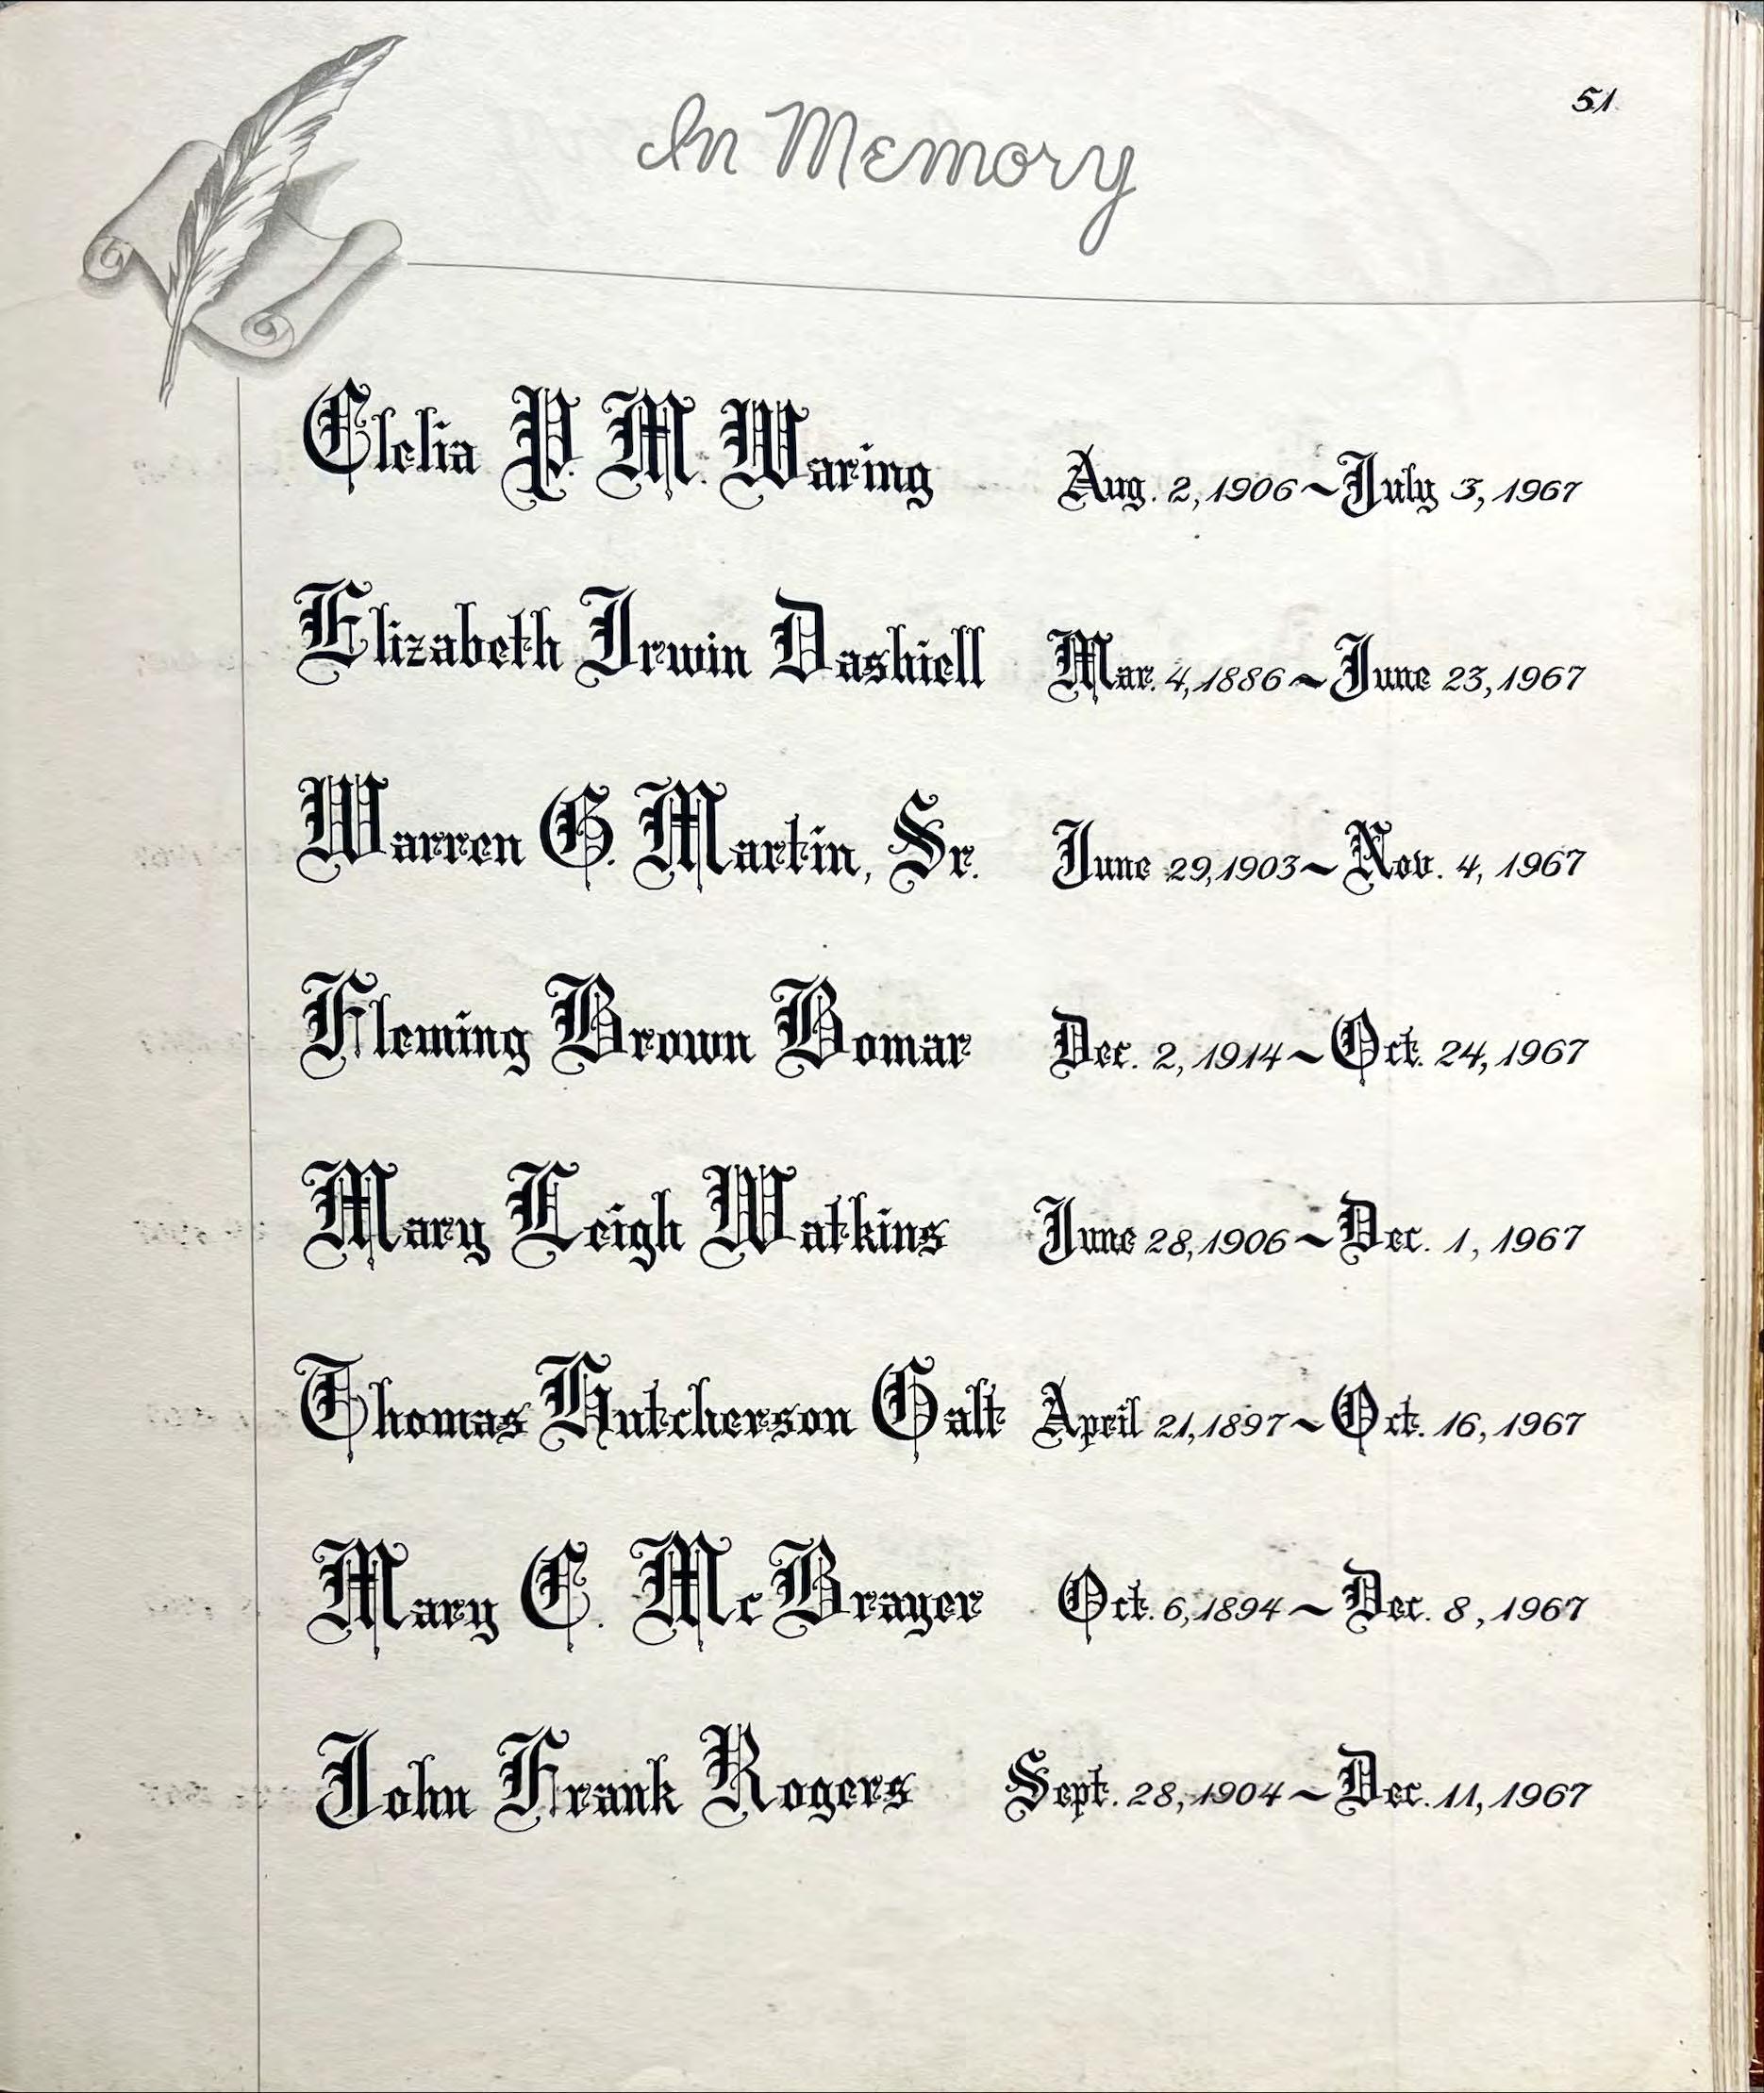 51
In Memory
Clelia P. M. Waring Aug. 2, 1906 ~ July 3, 1967
Elizabeth Irwin Dashiell Mar. 4, 1886 ~ June 23, 1967
Warren G. Martin, Sr. June 29, 1903 ~ Nov. 4, 1967
Fleming Brown Bomar Dec. 2, 1914 ~ Oct. 24, 1967
Mary Leigh Watkins June 28, 1906 ~ Dec. 1, 1967
Thomas Hutcherson Galt April 21, 1897 ~ Oct. 16, 1967
Mary C. McBrayer Oct. 6, 1894 ~ Dec. 8, 1967
John Frank Rogers Sept. 28, 1904 ~ Dec. 11, 1967